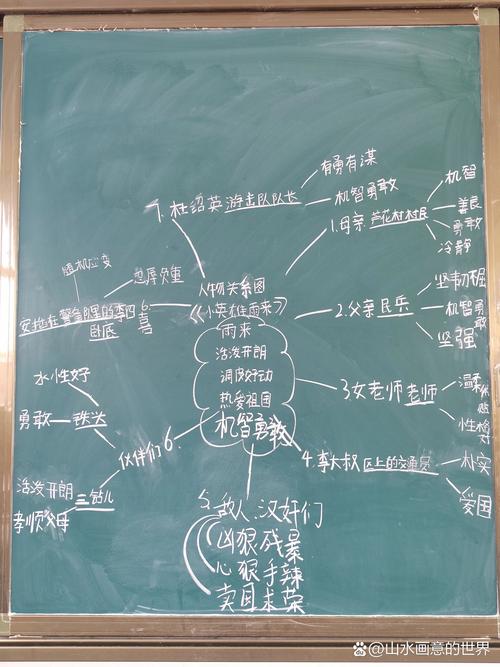 人物关系图
《小英雄雨来》
雨来
活泼开朗
调皮好动
热爱祖国
机智勇敢
1.母亲 芦花村村民
机智
善良
勇敢
冷静
2.父亲 民兵
坚韧
机智勇敢
坚强
3女老师 老师
温柔
4.李大叔 区上的交通员
朴实
爱国
5.敌人:汉奸们
凶狠残暴
心狠手辣
卖国求荣
伙伴们6.
铁头
水性好
勇敢
三钻儿
活泼开朗
孝顺父母
安插在警备队里的李四喜
卧底
随机应变
忍辱负重
7.杜绍英 游击队队长
有勇有谋
机智勇敢
山水画意的世界